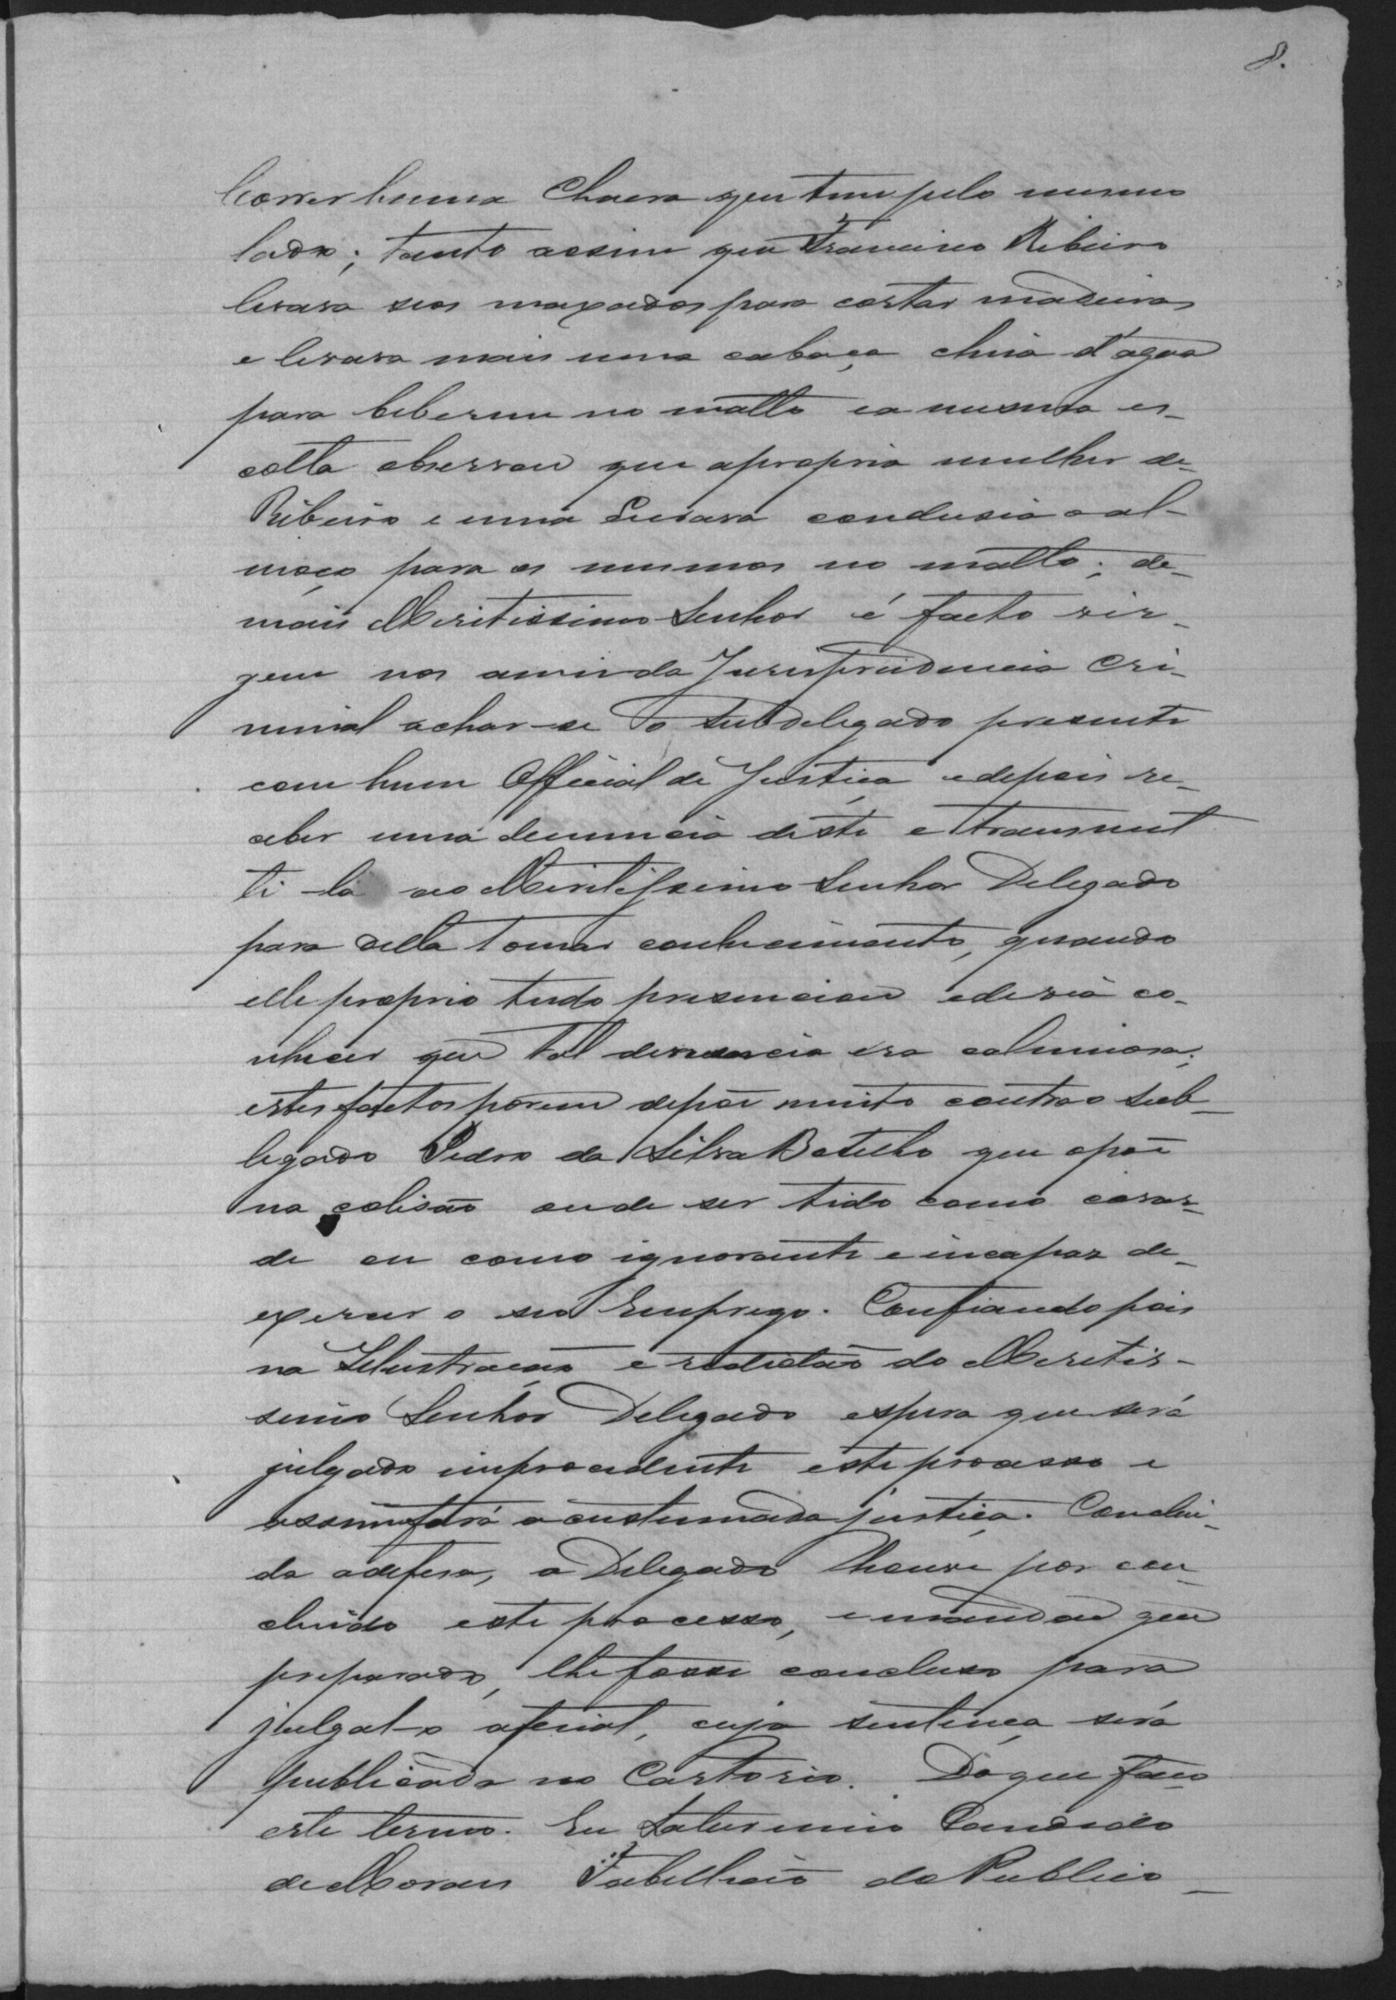 8.
Correr huma Chacra que tem pelo mesmo
lado; tanto assim que Francisco Ribeiro
levara seos maxados para cortar madeiras
e levara mais uma cabaça cheia d'agoa
para beberem no matto e a mesma es-
colta observou que a propria mulher de
Ribeiro e uma escrava condusia o al-
moço para os mesmos no matto; de-
mais Meritissimo Senhor é facto vir-
gem nos da Jurisprudencia Cri-
minal achar-se o subdelegado presente
com hum Official de Justiça e depois re-
ceber uma denuncia deste e transmit
ti-la ao Meritissimo Senhor Delegado
para della tomar conhecimento, quando
elle proprio tudo presenciou e devia co-
nhecer que tal denuncia era caluniosa;
estes factos porem depoe muito contra o Sub-
legado Pedro da Silva Botelho que o poe
na colisão ou de ser tido como covar-
de ou como ignorante e incapaz de
exercer o seo Emprego. Confiando pois
na Illustração e rectidão do Meretis-
simo Senhor Delegado espera que será
julgado improcedente este processo e
assim fará a custumada justiça. Conclui-
da a defesa, o Delegado houve por con-
cluido este processo, e mandou que
preparado, lhe fosse concluso para
julgal-o afinal, cuja sentença será
publicada no Cartorio. Do que faço
este termo. Eu Saturnino Candido
de Moraes Tabellião do Publico